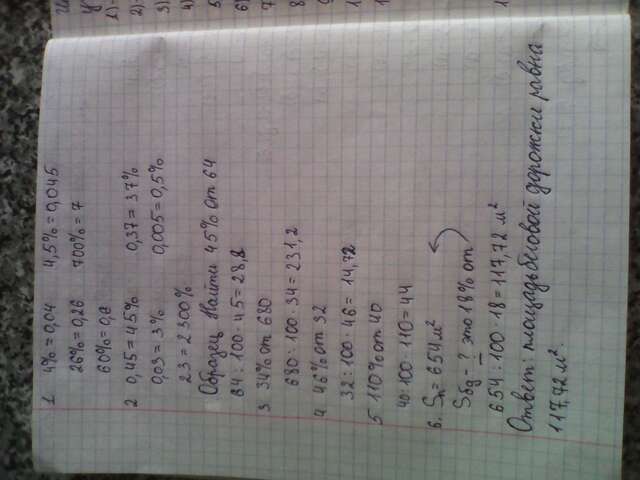 1 4% = 0,04 4,5% = 0,045
26% = 0,26 700% = 7
60% = 0,6
2 0,45 = 45% 0,37 = 37%
0,03 = 3% 0,005 = 0,5%
23 = 2300%
Образец Найти 45% от 64
64 : 100 · 45 = 28,8
3 34% от 680
680 : 100 · 34 = 231,2
4 46% от 32
32 : 100 · 46 = 14,72
5 110% от 40
40 : 100 · 110 = 44
6. Sп = 654 м²
Sбд - ? это 18% от
654 : 100 · 18 = 117,72 м²
Ответ: площадь беговой дорожки равна
117,72 м².